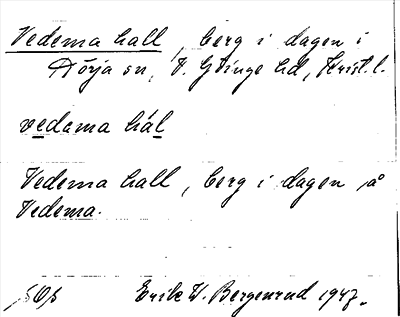 Vedema hall, berg i dagen i
Dörja sn, V. Göinge hd, Krist. l.
vedama hál
Vedema hall, berg i dagen å
Vedema.
Erik W. Bergenrud 1947.